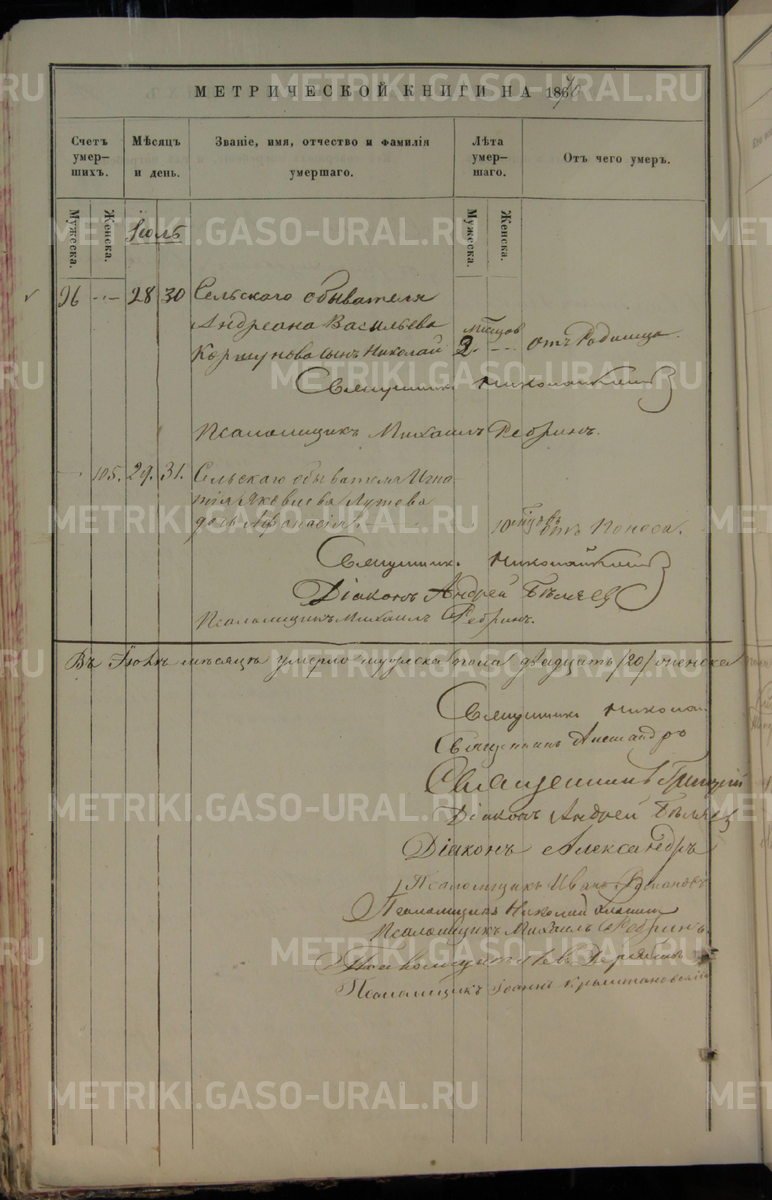 МЕТРИЧЕСКОЙ КНИГИ НА 1870
Счетъ умершихъ.
Мѣсяцъ и день.
Званіе, имя, отчество и фамилія умершаго.
Лѣта умершаго.
Отъ чего умеръ.
Мужеска.
Женска.
Мужеска.
Женска.
Іюль
96 28 30 Сельскаго обывателя
Андреана Васильева мѣсяцов
Коршунова сынъ Николай 2. отъ Родимца.
Священникъ Николай
Псаломщикъ Михаилъ Ребринъ.
105. 29. 31. Сельскаго обывателя Игна-
тія Яковлева Лутова
дочь Афанасія 10 отъ Поноса.
Священникъ Николай
Діаконъ Андрей Бѣляев
Псаломщикъ Михаилъ Ребринъ.
Въ Іюлѣ мѣсяцѣ умерло мужеска пола двадцать /20/ женска
Священникъ Николай
Священникъ Александръ
Священникъ Григорій
Діаконъ Андрей Бѣляев
Діаконъ Александръ
Псаломщикъ Иванъ
Псаломщикъ Николай
Псаломщикъ Михаилъ Ребринъ.
Псаломщикъ
Псаломщикъ Іоаннъ
METRIKI.GASO-URAL.RU